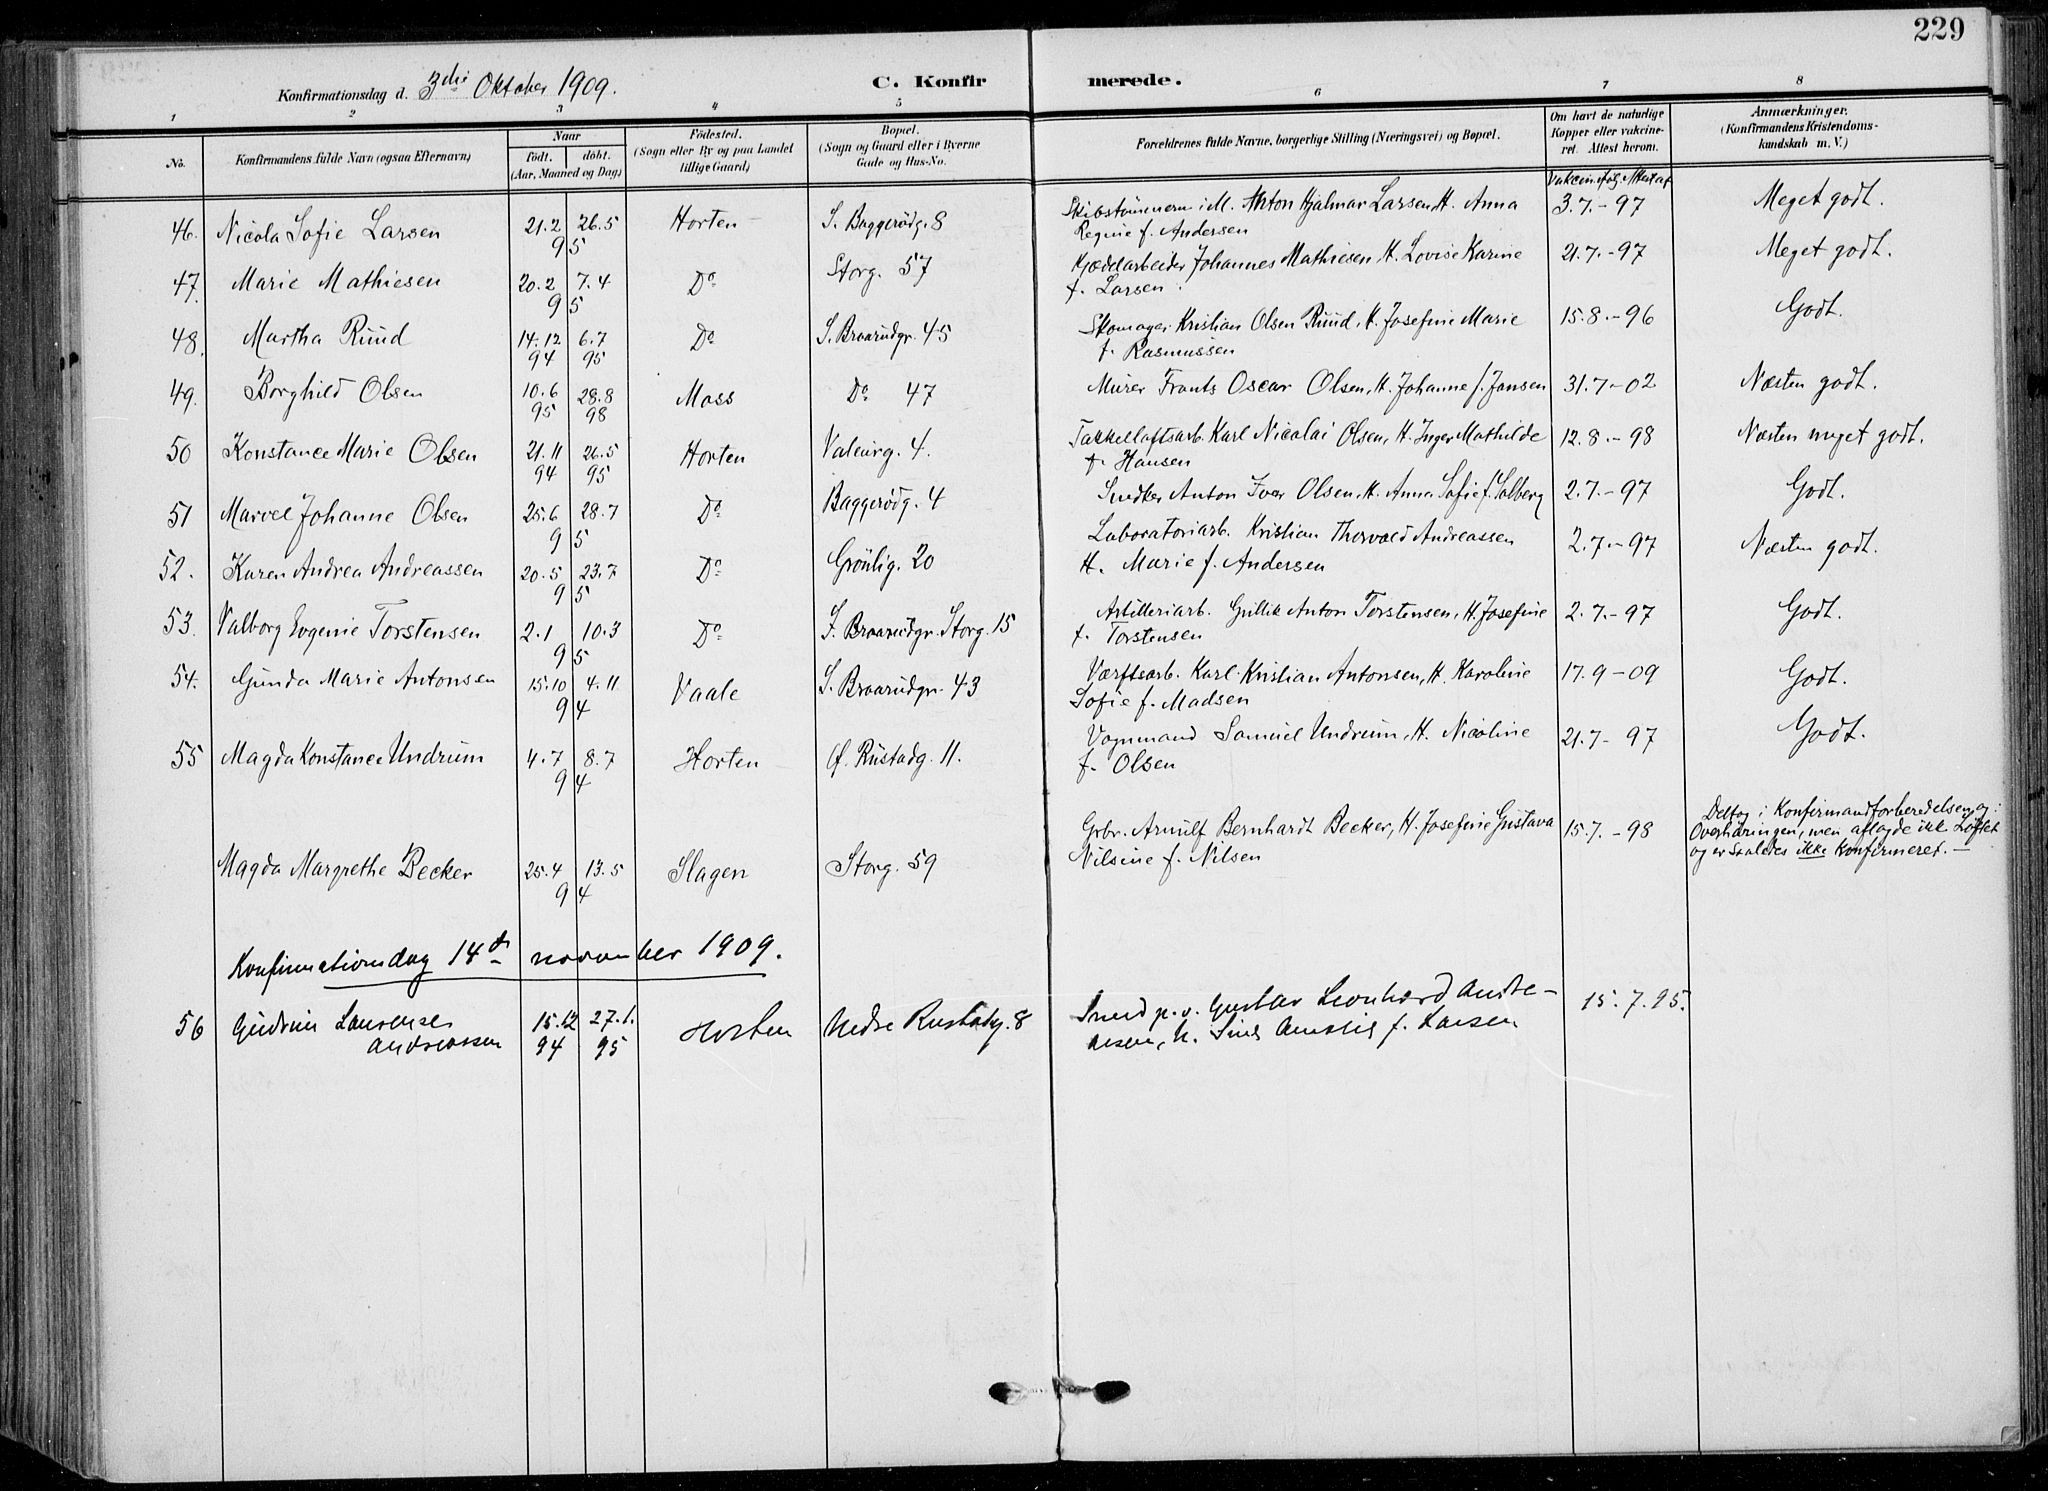 229
Konfirmationsdag d. 3die Oktober 1909.
C. Konfirmerede.
1 2 3 4 5 6 7 8
No.
Konfirmandens fulde Navn (ogsaa Efternavn)
Naar
födt. döbt.
(Aar, Maaned og Dag)
Födested.
(Sogn eller By og paa Landet
tillige Gaard)
Bopæl.
(Sogn og Gaard eller i Byerne
Gade og Hus-No.
Forældrenes fulde Navne, borgerlige Stilling (Næringsvei) og Bopæl.
Om havt de naturlige
Kopper eller vakcine-
ret. Attest herom.
Anmærkninger.
(Konfirmandens Kristendoms-
kundskab m. V.)
Vakcin. flg. Attest af
46. Nicola Sofie Larsen 21.2 26.5 Horten S. Baggerödg. 8 Skibstömmerm. i M. Anton Hjalmar Larsen, H. Anna 3.7.-97 Meget godt.
95 Regine f. Andersen
47. Marie Mathiesen 20.2 7.4 Do Storg. 57 Kjedelarbeider Johannes Mathiesen, H. Lovise Karine 21.7.-97 Meget godt.
95 f. Larsen.
48. Martha Ruud 14.12 6.7 Do S. Braarudgr. 45 Skomager Kristian Olsen Ruud, H. Josefine Marie 15.8.-96 Godt.
94 95 f. Rasmussen
49. Borghild Olsen 10.6 28.8 Moss Do 47 Murer Frants Oscar Olsen, H. Johanne f. Jansen 31.7.-02 Næsten godt.
95 98
50 Konstance Marie Olsen 21.11 26.5 Horten Valeurg. 4. Takkelloftsarb. Karl Nicolai Olsen, H. Inger Mathilde 12.8.-98 Næsten meget godt.
94 95 f. Hansen
51 Marvel Johanne Olsen 25.6 28.7 Do Baggerödg. 4 Snedker Anton Iver Olsen, H. Anna Sofie f. Solberg 2.7.-97 Godt.
95
52. Karen Andrea Andreassen 20.5 23.7 Do Grönlig. 20 Laboratoriarb. Kristian Thorvald Andreassen 2.7.-97 Næsten godt.
95 H. Marie f. Andersen
53. Valborg Evgenie Torstensen 2.1 10.3 Do S. Braarudgr. Storg. 15 Artilleriarb. Gullik Anton Torstensen, H. Josefine 2.7.-97 Godt.
95 f. Torstensen
54. Gunda Marie Antonsen 15.10 4.11 Vaale S. Braarudgr. 43 Værftsarb. Karl Kristian Antonsen, H. Karoline 17.9-09 Godt.
94 Sofie f. Madsen
55 Magda Konstance Undrum 4.7 8.7 Horten Ö. Rustadg. 11. Vognmand Samuel Undrum, H. Nicoline 21.7-97 Godt.
94 f. Olsen
Magda Margrethe Becker 25.4 13.5 Slagen Storg. 59 Grbr. Arnulf Bernhardt Becker, H. Josefine Gustava 15.7.-98 Deltog i Konfirmandforberedelsen og i
94 Nilsine f. Nilsen Overhöringen, men aflagde ikke Löftet
og er saaledes ikke Konfirmeret.-
Konfirmationsdag 14de november 1909.
56 Gudrun Laurense 15.12 27.1. Horten Nedre Rustadg. 8 Smed p. v. Gustav Leonhard Andre- 15.7.95.
Andreassen 94 95 asen, H. f. Larsen